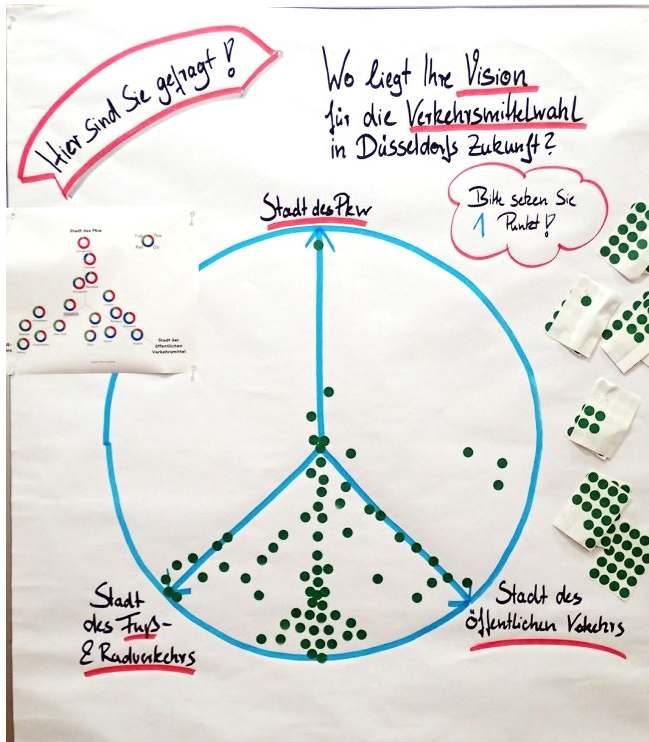 Hier sind Sie gefragt!
Wo liegt Ihre Vision
für die Verkehrsmittelwahl
in Düsseldorfs Zukunft?
Bitte setzen Sie
1 Punkt!
Stadt des Pkw
Stadt des Pkw
Stadt der
öffentlichen
Verkehrsmittel
Stadt
des Fuß-
& Radverkehrs
Stadt des
öffentlichen Vekehrs